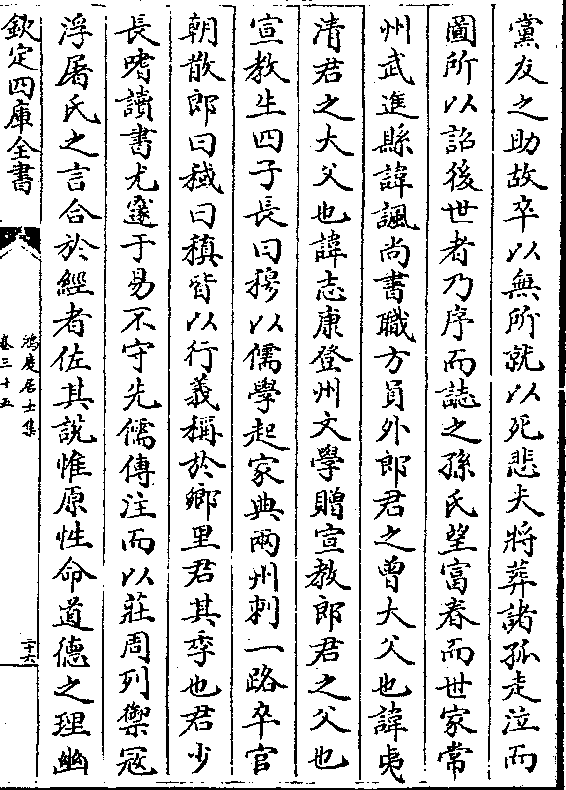 黨友之助故卒以無所就以死悲夫將葬諸孤走泣而
圖所以詔後世者乃序而誌之孫氏望富春而世家常
州武進縣諱諷尚書職方員外郎君之曾大父也諱夷
清君之大父也諱志康登州文學贈宣教郎君之父也
宣教生四子長曰穆以儒學起家典兩州刺一路卒官
朝散郎曰稢曰稹皆以行義稱於鄉里君其季也君少
長嗜讀書尤邃于易不守先儒傳注而以莊周列禦冦
浮屠氏之言合於經者佐其說惟原性命道德之理幽
欽定四庫全書
鴻慶居士集
卷三十五
二十六